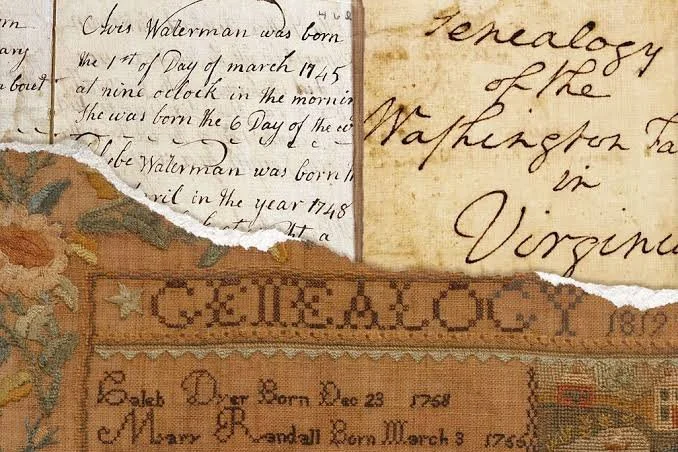 Avis Waterman was born
the 1st of Day of march 1745
at nine oclock in the mornin
She was born the 6 Day of the
Phebe Waterman was born
ril in the year 1748
a
Genealogy
of the
Washington Fa
in
Virginia
GENEALOGY 1819
Caleb Dyer Born Dec 23 1768
Mary Randall Born March 3 1766